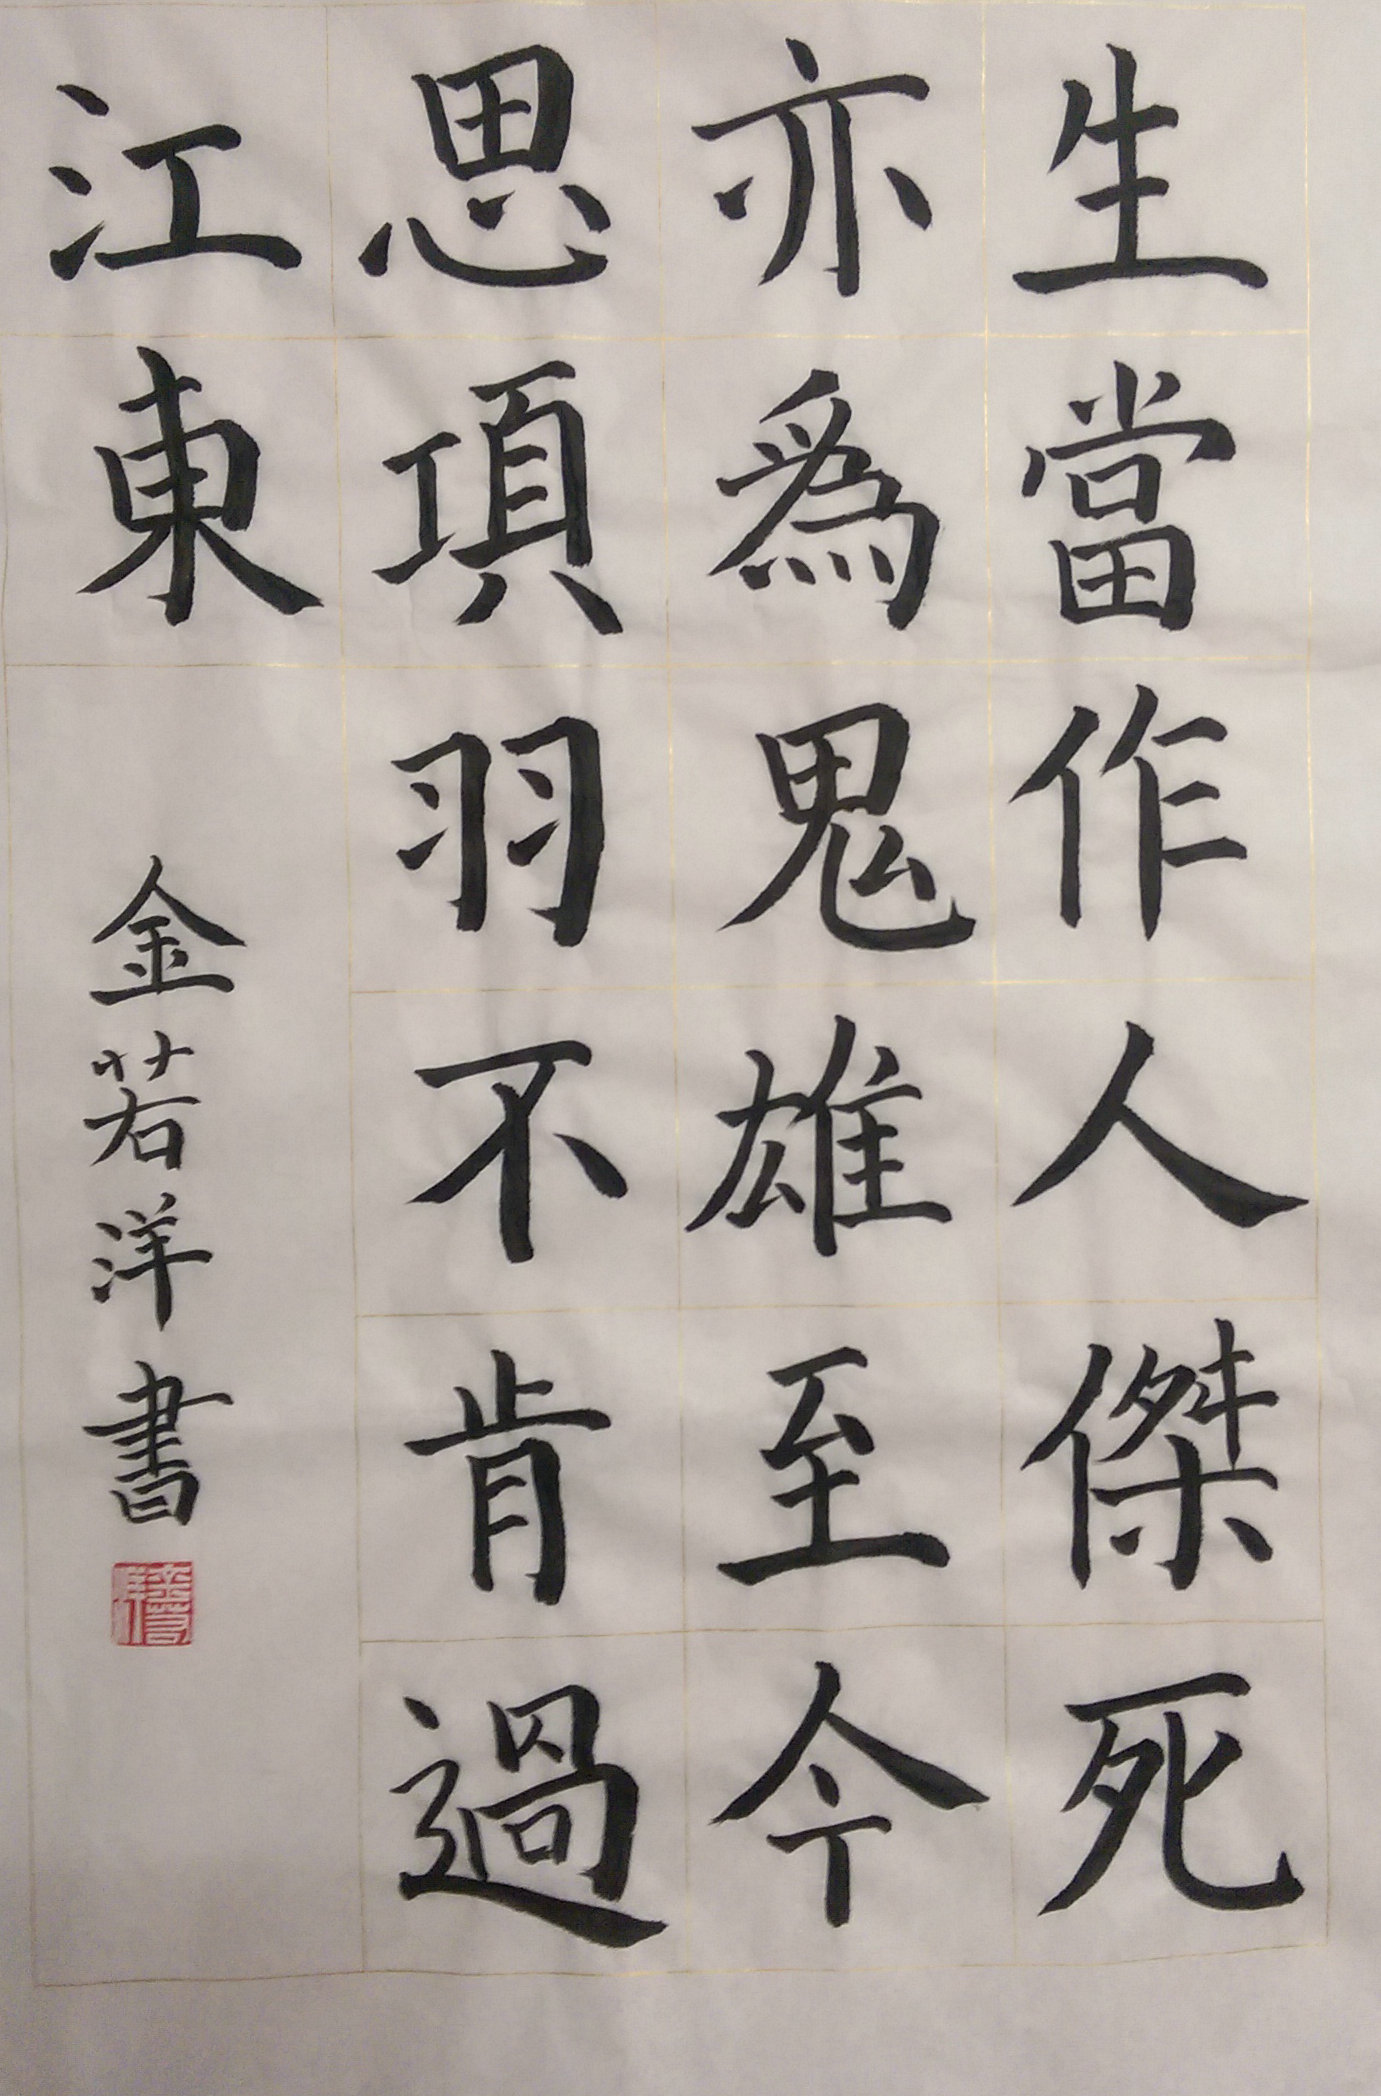 生當作人傑死
亦爲鬼雄至今
思項羽不肯過
江東
金若洋書